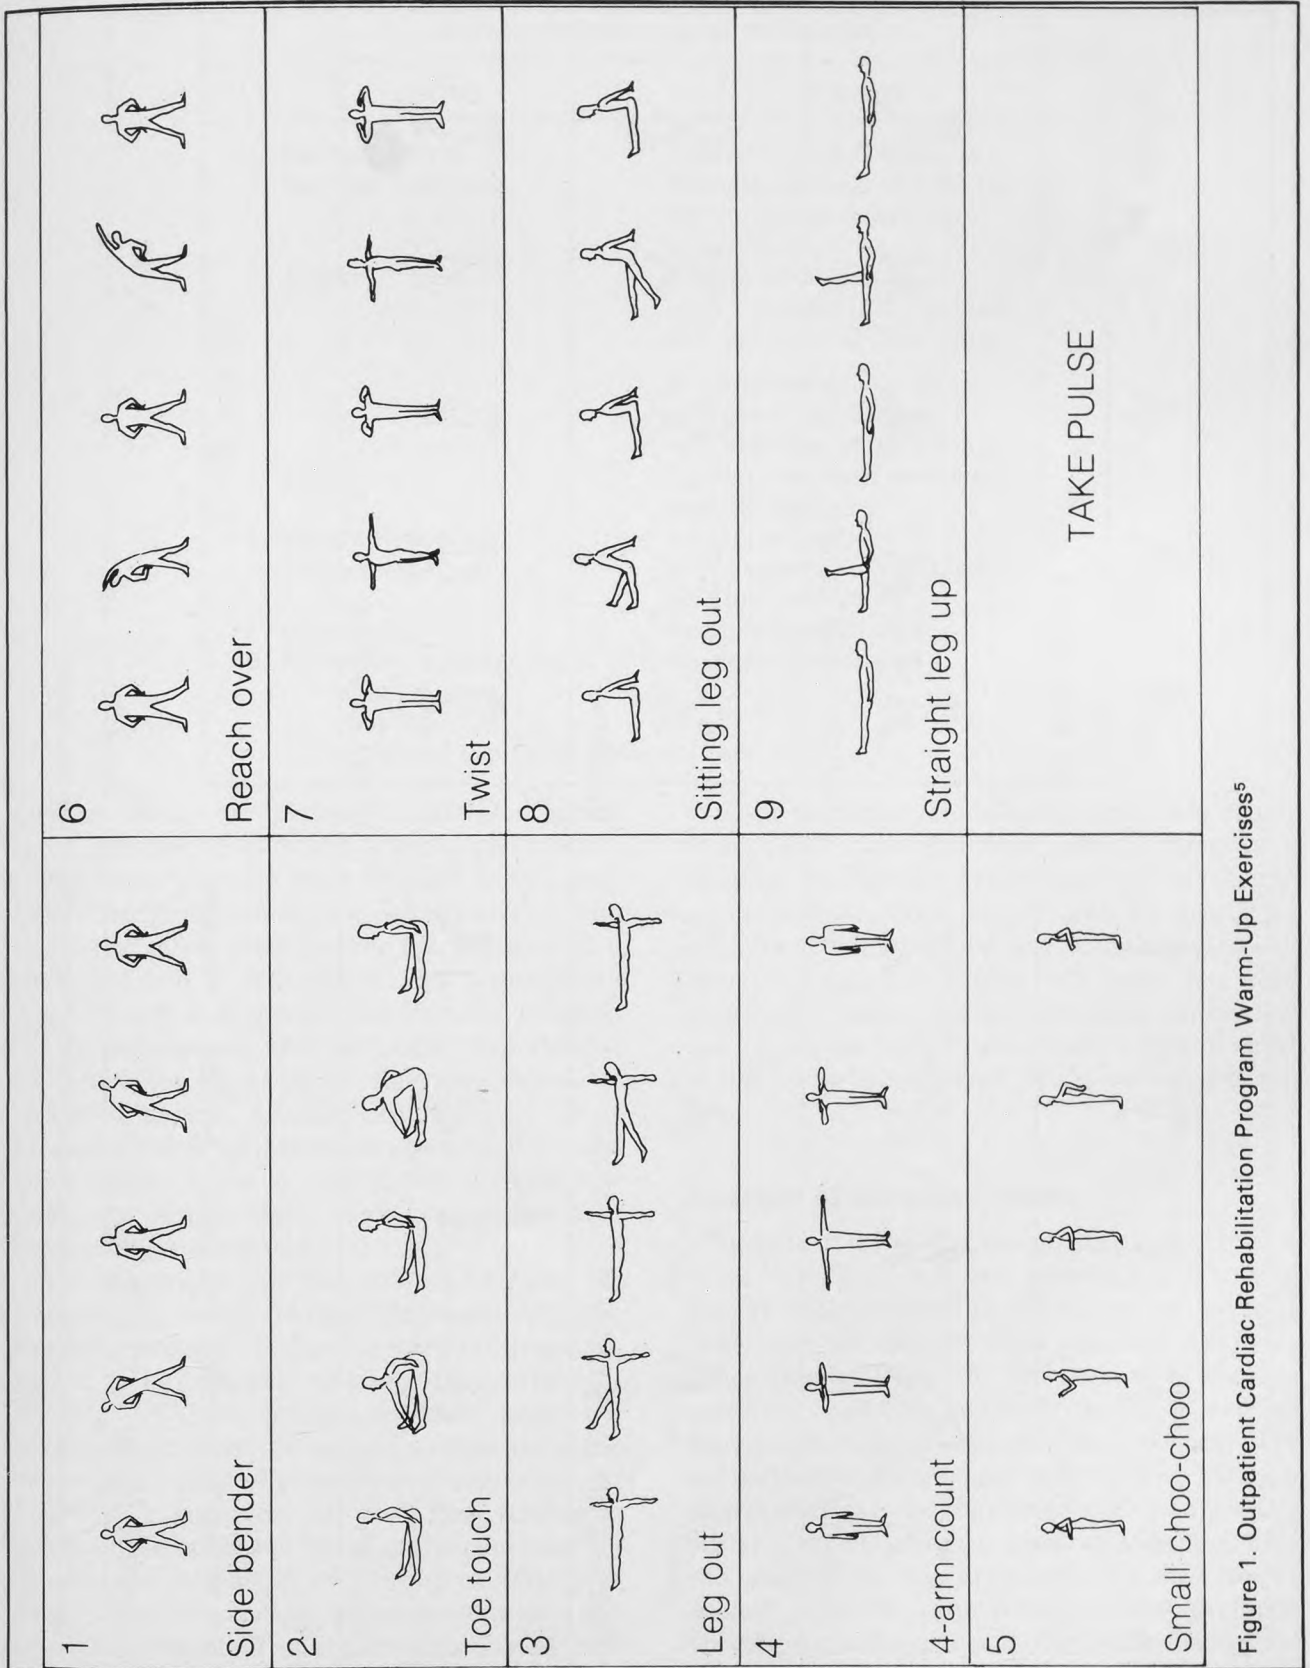 1
Side bender
2
Toe touch
3
Leg out
4
4-arm count
5
Small choo-choo
6
Reach over
7
Twist
8
Sitting leg out
9
Straight leg up
TAKE PULSE
Figure 1. Outpatient Cardiac Rehabilitation Program Warm-Up Exercises⁵